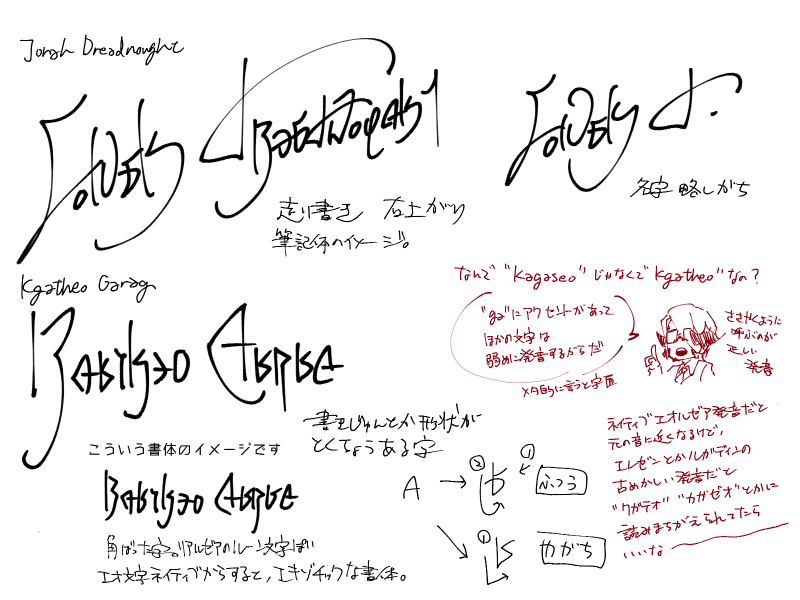 Jorah Dreadnought
走り書き 右上がり
筆記体のイメージ。
名字 略しがち
Kgatheo Garag
こういう書体のイメージです
一書きじゅんとか形状が
とくちょうある字
角ばった字。リアルゼアのルーン文字ぽい
エオ文字ネイティブからすると、エキゾチックな書体。
A
②
①
ふつう
①
やがち
なんで "Kagaseo" じゃなくて "Kgatheo" なの?
"ga"にアクセントがあって
ほかの文字は
弱めに発音するからだ
メタ的に言うと字面
ささやくように
呼ぶのが
正しい
発音
ネイティブエオルゼア発音だと
元の音に近くなるけど、
エレゼンとかルガディンの
古めかしい発音だと
"クガテオ" "カガゼオ"とかに
読みまちがえられてたら
いいな